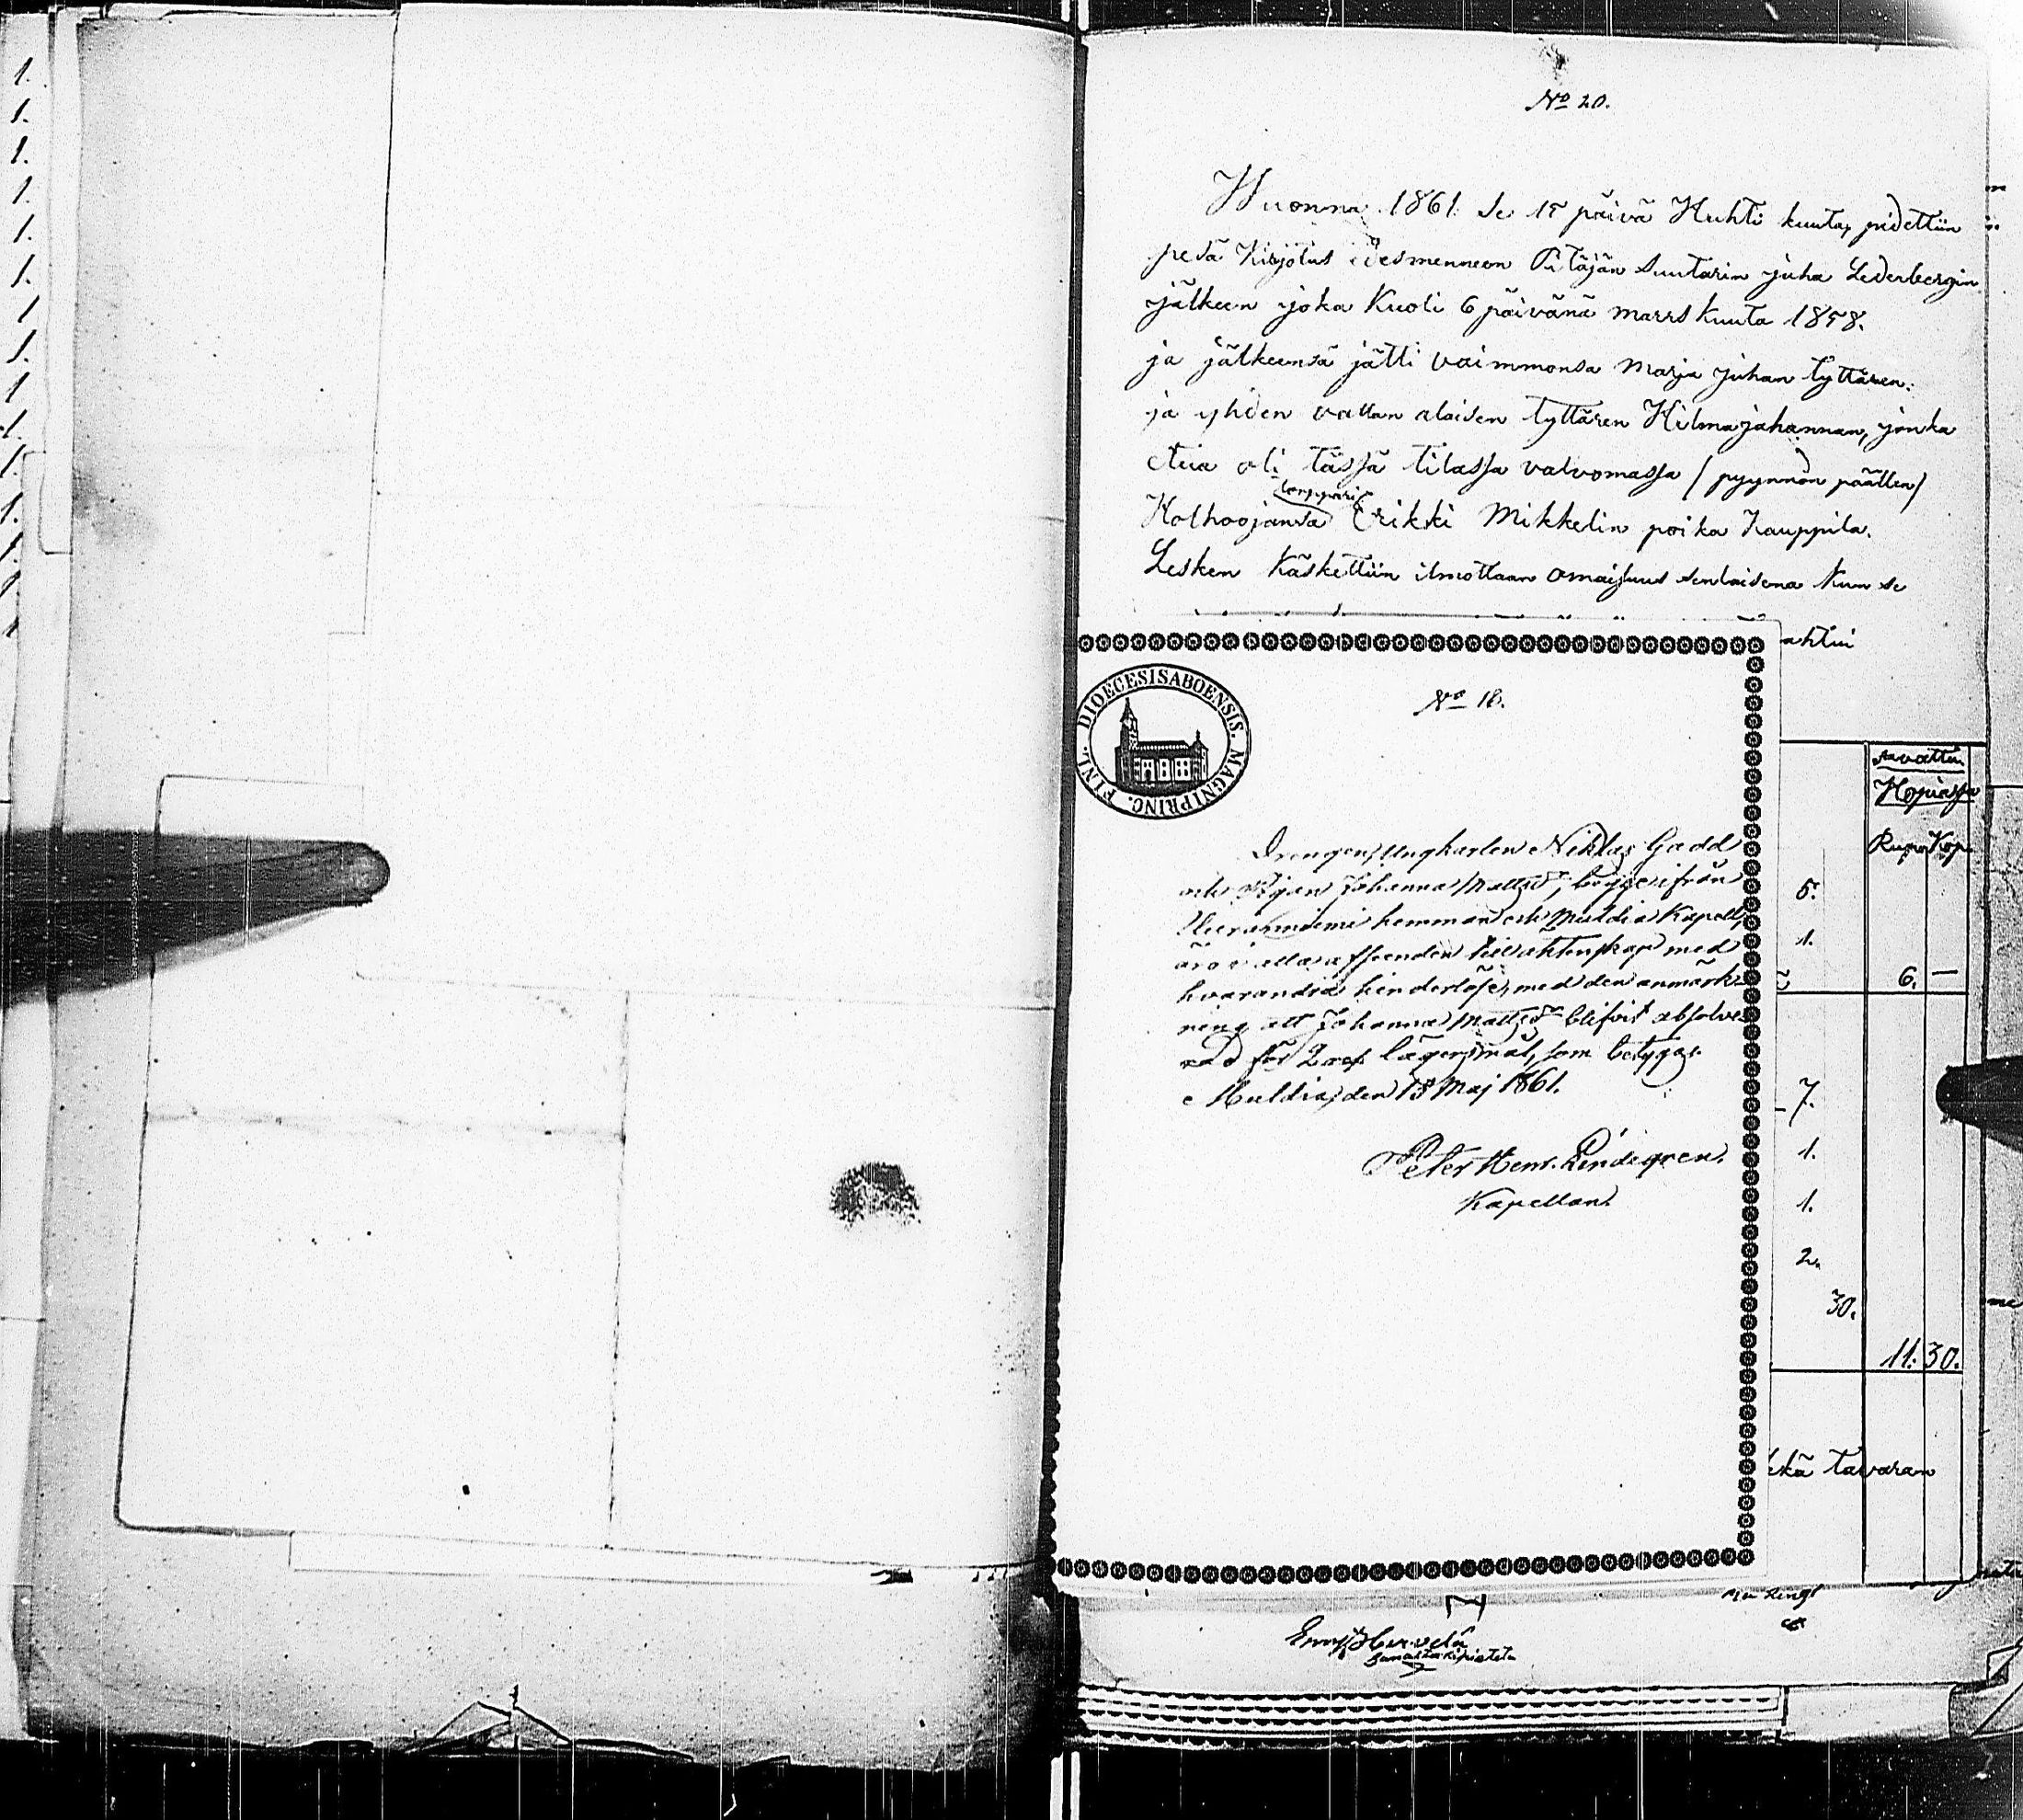 1.
1.
1.
1.
1.
1.
1
1.
1
1.
1.
1.
1.
1
1
No 20.
Wuonna 1861. se 15 päivä Huhti kuuta, pidettiin
pesä Kirjotus edesmenneen Pitäjän Suutarin juha Lederbergin
jälkeen joka Kuoli 6 päivänä marrs kuuta 1858.
ja jälkeensä jätti vaimmonsa Marja juhan tyttären:
ja yhden vallan alaisen tyttären Hilmajohannan, jonka
etua oli tässä tilassa valvomassa / pyynnön päällen /
Lamppari
Holhoojansa Erikki Mikkelin poika Kauppila.
Lesken Käskettiin ilmottaan omaisuus senlaisena Kun se
ahtui
No 18.
DIOECESIS ABOENSIS. MAGNI PRINC. FINL.
Drengen, Ungkarlen Niklas Gadd
och Pigan Johanna Mattsdr, begge ifrån
hemman och Muldia Kapell,
äro i alla afseenden till äktenskap med
hvarandra hinderlöse, med den anmärk-
ning att Johanna Mattsdr blifvit absolve-
rad för lägersmål, som betygas.
Muldia, den 18 Maj 1861.
Peter Henr. Lindegren.
Kapellan.
arvattu
Hopiassa
Rupl Kop.
5.
1.
6. —
7.
1.
1.
2.
30.
11. 30.
ekä tavaran